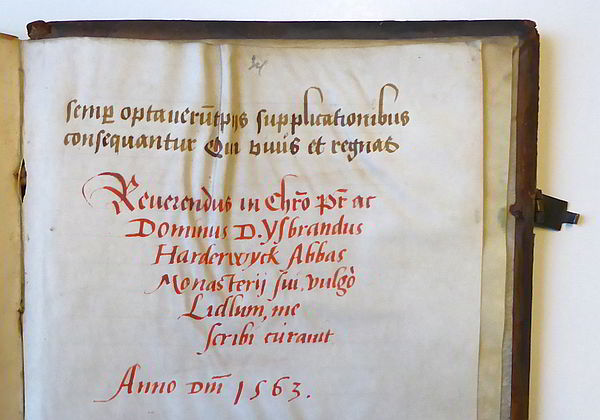 semp optauerūt pijs supplicationibus
consequantur Qui viuis et regnas
Reuerendus in Chrō Pr̄ ac
Dominus D. Ysbrandus
Harderwyck Abbas
Monasterij sui, vulgò
Lidlum, me
scribi curauit
Anno Dm̄ 1563.